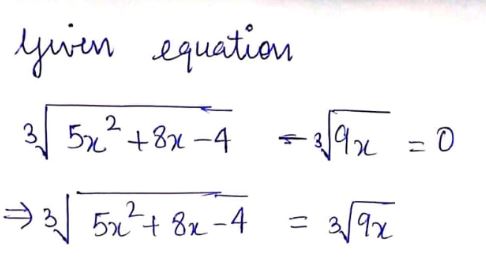 Given equation
∛(5x²+8x-4) - ∛(9x) = 0
⇒ ∛(5x²+8x-4) = ∛(9x)